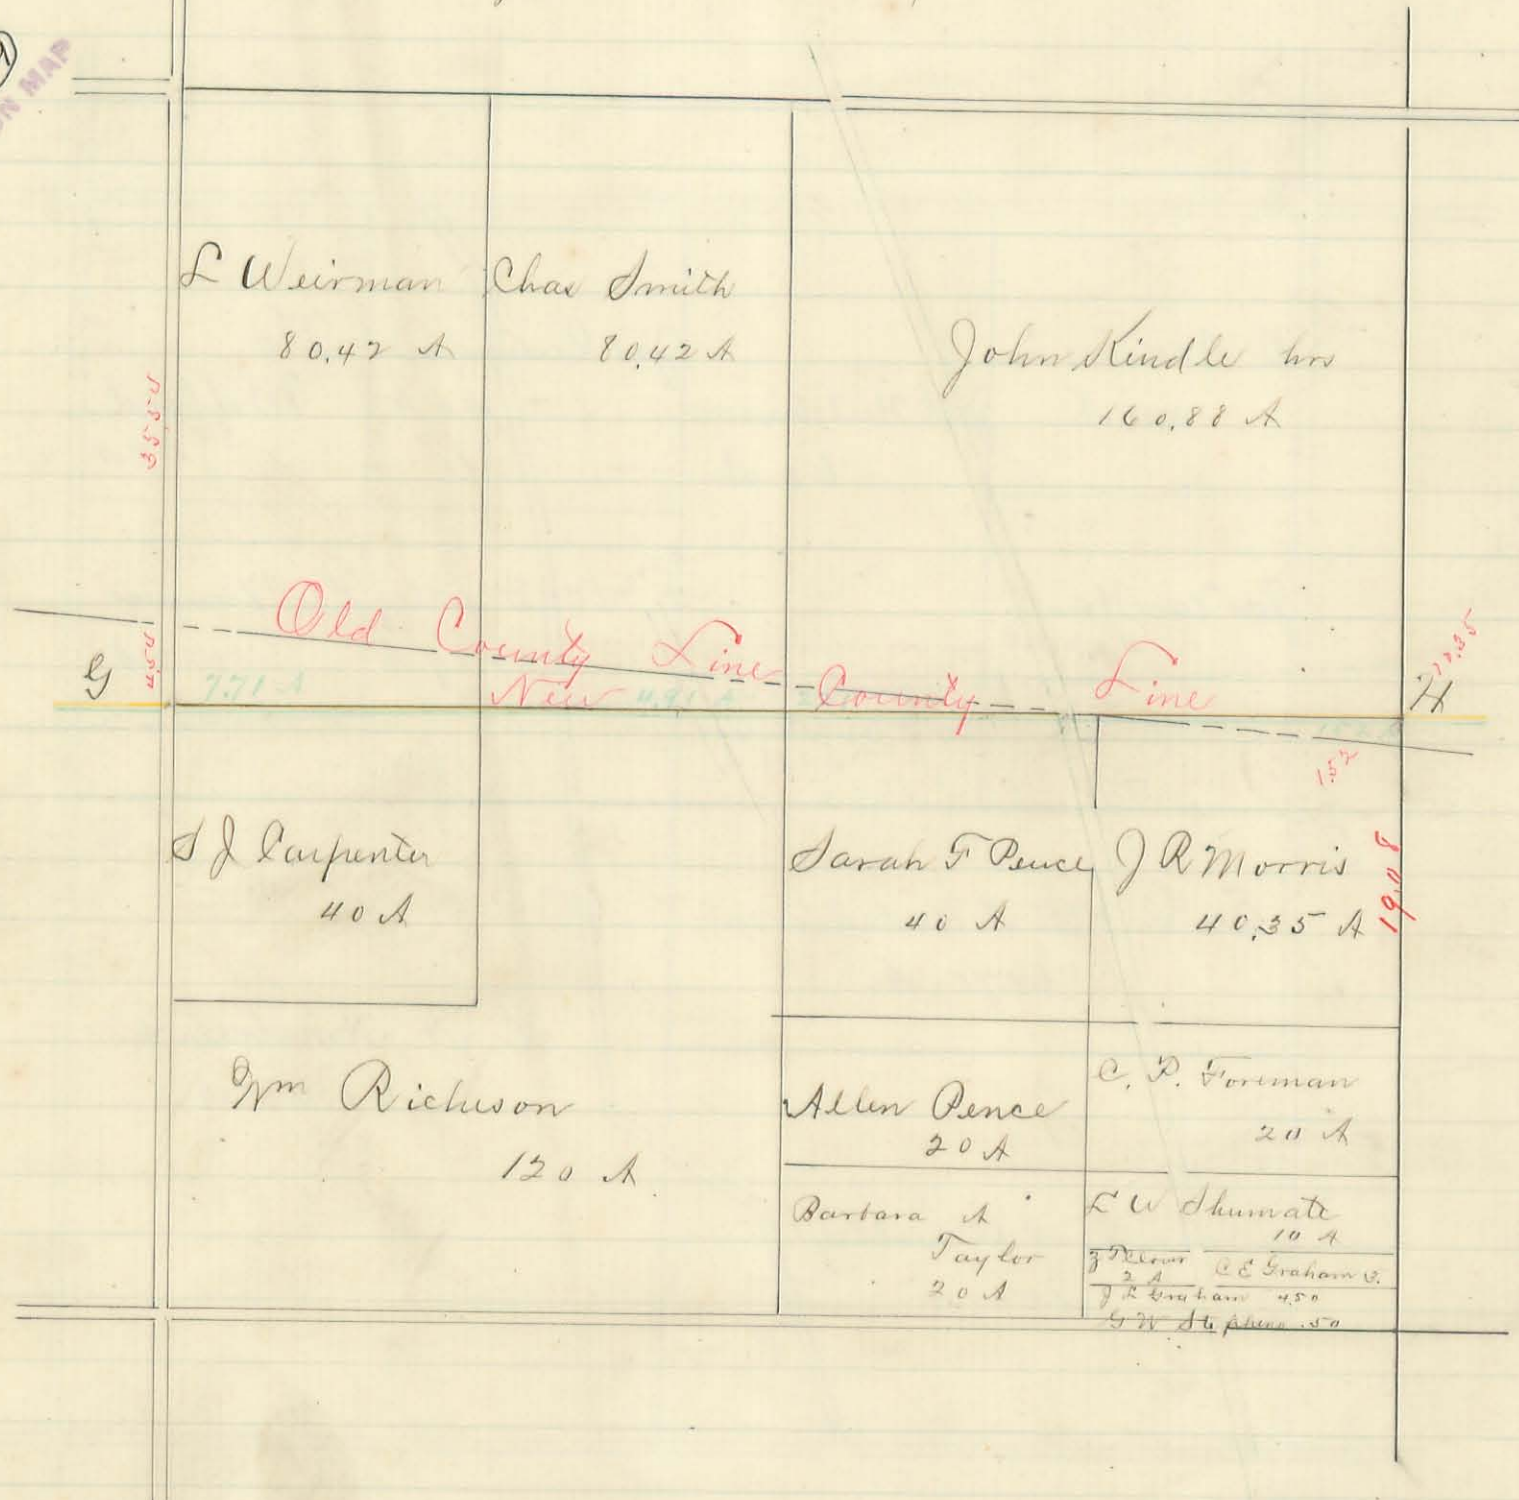 MAP
L Weirman
80.42 A
Chas Smith
80.42 A
John Kindle hrs
160.88 A
Old County Line
G
7.71 A
New
4.91 A
County Line
H
1.52
S J Carpenter
40 A
Sarah F Pence
40 A
J R Morris
40.35 A
19.08
Wm Richeson
120 A
Allen Pence
20 A
C. P. Foreman
20 A
Barbara A
Taylor
20 A
L W Shumate
10 A
2 A
C E Graham 3.
J L Graham 4.50
G W Stephens .50